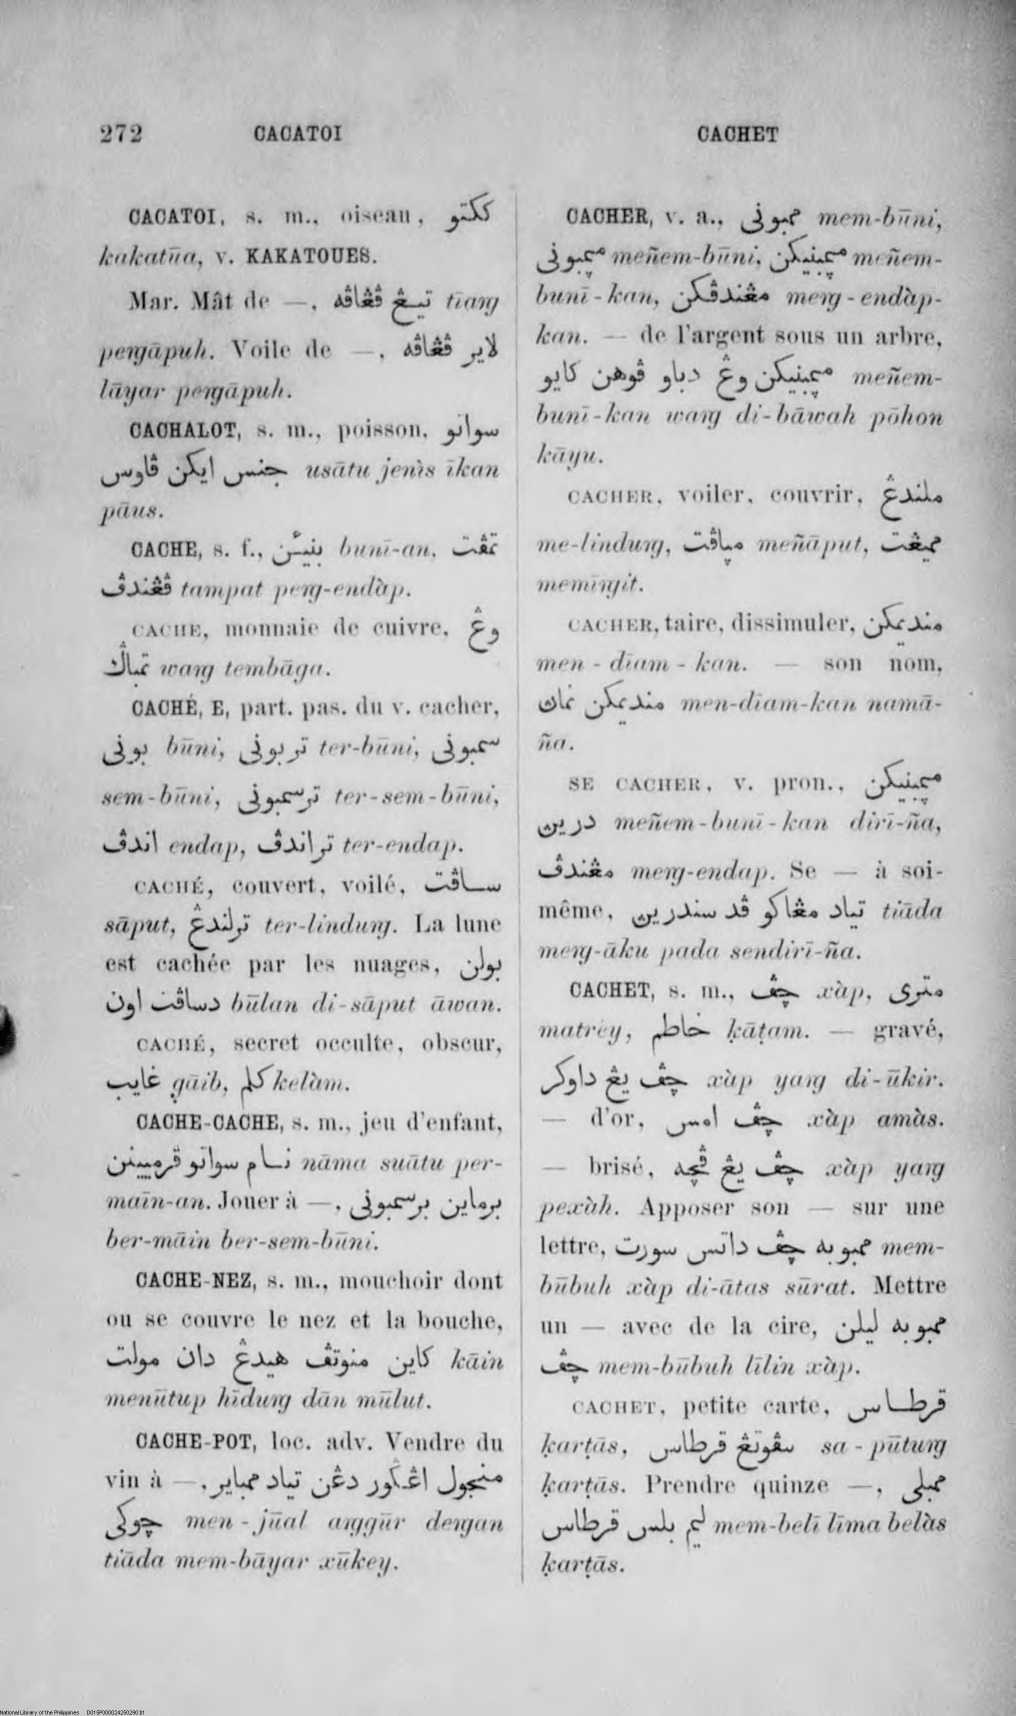 272 CACATOI CACHET
CACATOI, s. m., oiseau, ککتو
kakatūa, v. KAKATOUES.
Mar. Mât de —, تيڠ ڤڠاڤه tīaŋ
peŋāpuh. Voile de —, لاير ڤڠاڤه
lāyar peŋāpuh.
CACHALOT, s. m., poisson, سواتو
جنس ايکن ڤاوس usātu jenìs īkan
pāus.
CACHE, s. f., بنيئن bunī-an, تمڤت
ڤڠندڤ tampat peŋ-endàp.
CACHE, monnaie de cuivre, وڠ
تمباݢ waŋ tembāga.
CACHÉ, E, part. pas. du v. cacher,
بوني būni, تربوني ter-būni, سمبوني
sem-būni, ترسمبوني ter-sem-būni,
اندڤ endap, تراندڤ ter-endap.
CACHÉ, couvert, voilé, ساڤت
sāput, ترلندڠ ter-linduŋ. La lune
est cachée par les nuages, بولن
دساڤت اون būlan di-sāput āwan.
CACHÉ, secret occulte, obscur,
غايب ġāib, کلم kelàm.
CACHE-CACHE, s. m., jeu d'enfant,
نام سواتو ڤرمينن nāma suātu per-
maīn-an. Jouer à —, برماين برسمبوني
ber-māin ber-sem-būni.
CACHE-NEZ, s. m., mouchoir dont
on se couvre le nez et la bouche,
کاين منوتڤ هيدڠ دان مولت kāin
menūtup hīduŋ dān mūlut.
CACHE-POT, loc. adv. Vendre du
vin à —, منجول اڠݢور دڠن تياد ممباير
چوکي men-jūal aŋgūr deŋan
tiāda mem-bāyar xūkey.
CACHER, v. a., ممبوني mem-būni,
مڽمبوني meñem-būni, مڽمبنيکن meñem-
bunī-kan, مڠندڤکن meŋ-endàp-
kan. — de l'argent sous un arbre,
مڽمبنيکن وڠ دباو ڤوهن کايو meñem-
bunī-kan waŋ di-bāwah pōhon
kāyu.
CACHER, voiler, couvrir, ملندڠ
me-linduŋ, مڽاڤت meñāput, مميڠت
memīŋit.
CACHER, taire, dissimuler, منديمکن
men-dīam-kan. — son nom,
منديمکن نماڽ men-dīam-kan namā-
ña.
SE CACHER, v. pron., مڽمبنيکن
درين meñem-bunī-kan dirī-ña,
مڠندڤ meŋ-endap. Se — à soi-
même, تياد مڠاکو ڤد سندرين tiāda
meŋ-āku pada sendirī-ña.
CACHET, s. m., چڤ xàp, متري
matrèy, خاطم ḳāṭam. — gravé,
چڤ يڠ داوکر xàp yaŋ di-ūkir.
— d'or, چڤ امس xàp amàs.
— brisé, چڤ يڠ ڤچه xàp yaŋ
pexàh. Apposer son — sur une
lettre, ممبوبه چڤ داتس سورت mem-
būbuh xàp di-ātas sūrat. Mettre
un — avec de la cire, ممبوبه ليلن
چڤ mem-būbuh līlin xàp.
CACHET, petite carte, قرطاس
ḳarṭās, سڤوتڠ قرطاس sa-pūtuŋ
ḳarṭās. Prendre quinze —, ممبلي
ليم بلس قرطاس mem-belī līma belàs
ḳarṭās.
National Library of the Philippines